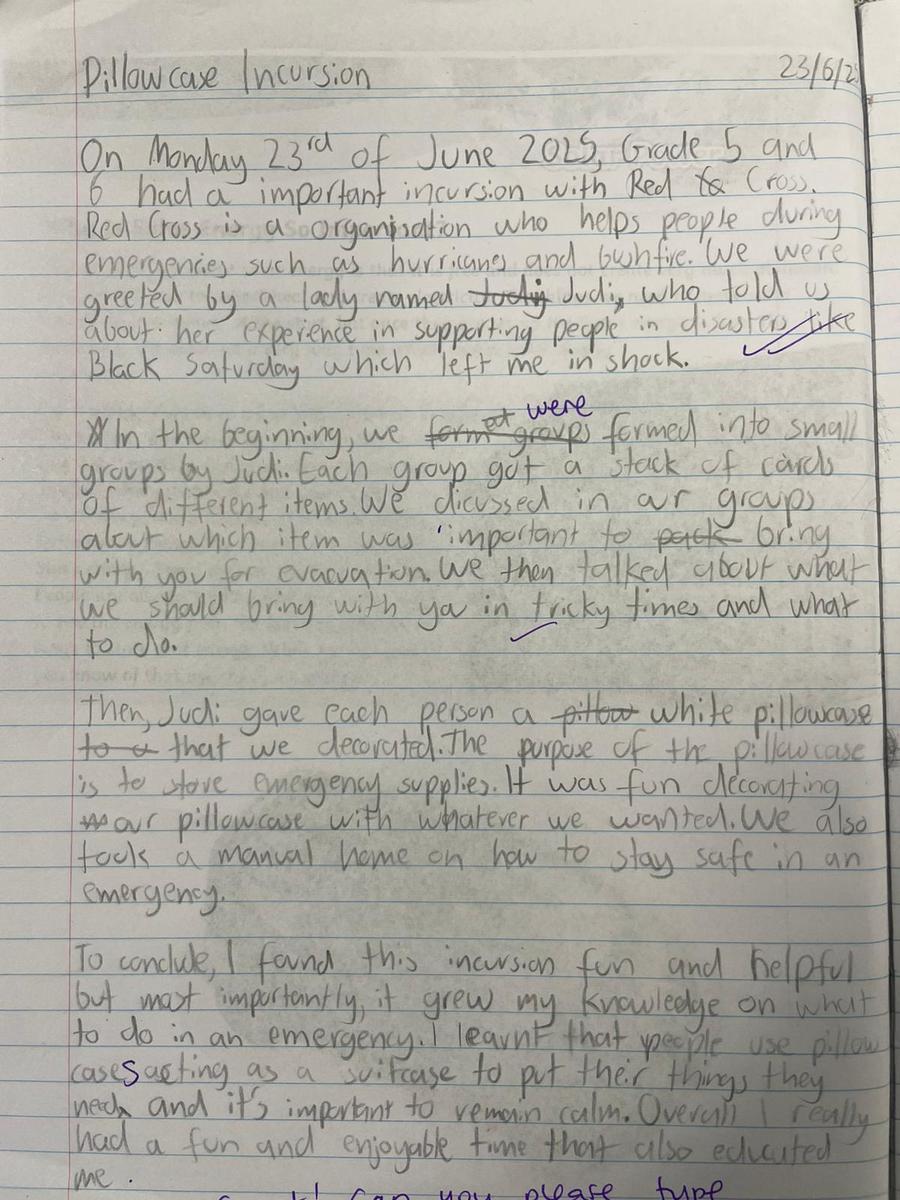 Pillowcase Incursion 23/6/2
On Monday 23rd of June 2025, Grade 5 and
6 had a important incursion with Red Cross.
Red Cross is a organisation who helps people during
emergencies such as hurricanes and bushfire. We were
greeted by a lady named Judi, who told us
about her experience in supporting people in disasters like
Black Saturday which left me in shock.
In the beginning, we were formed into small
groups by Judi. Each group got a stack of cards
of different items. We dicussed in our groups
about which item was important to bring
with you for evacuation. We then talked about what
we should bring with you in tricky times and what
to do.
Then, Judi gave each person a white pillowcase
that we decorated. The purpose of the pillowcase
is to store emergency supplies. It was fun decorating
our pillowcase with whatever we wanted. We also
took a manual home on how to stay safe in an
emergency.
To conclude, I found this incursion fun and helpful
but most importantly, it grew my knowledge on what
to do in an emergency. I learnt that people use pillow
cases acting as a suitcase to put their things they
need and it's important to remain calm. Overall I really
had a fun and enjoyable time that also educated
me.
can you please type